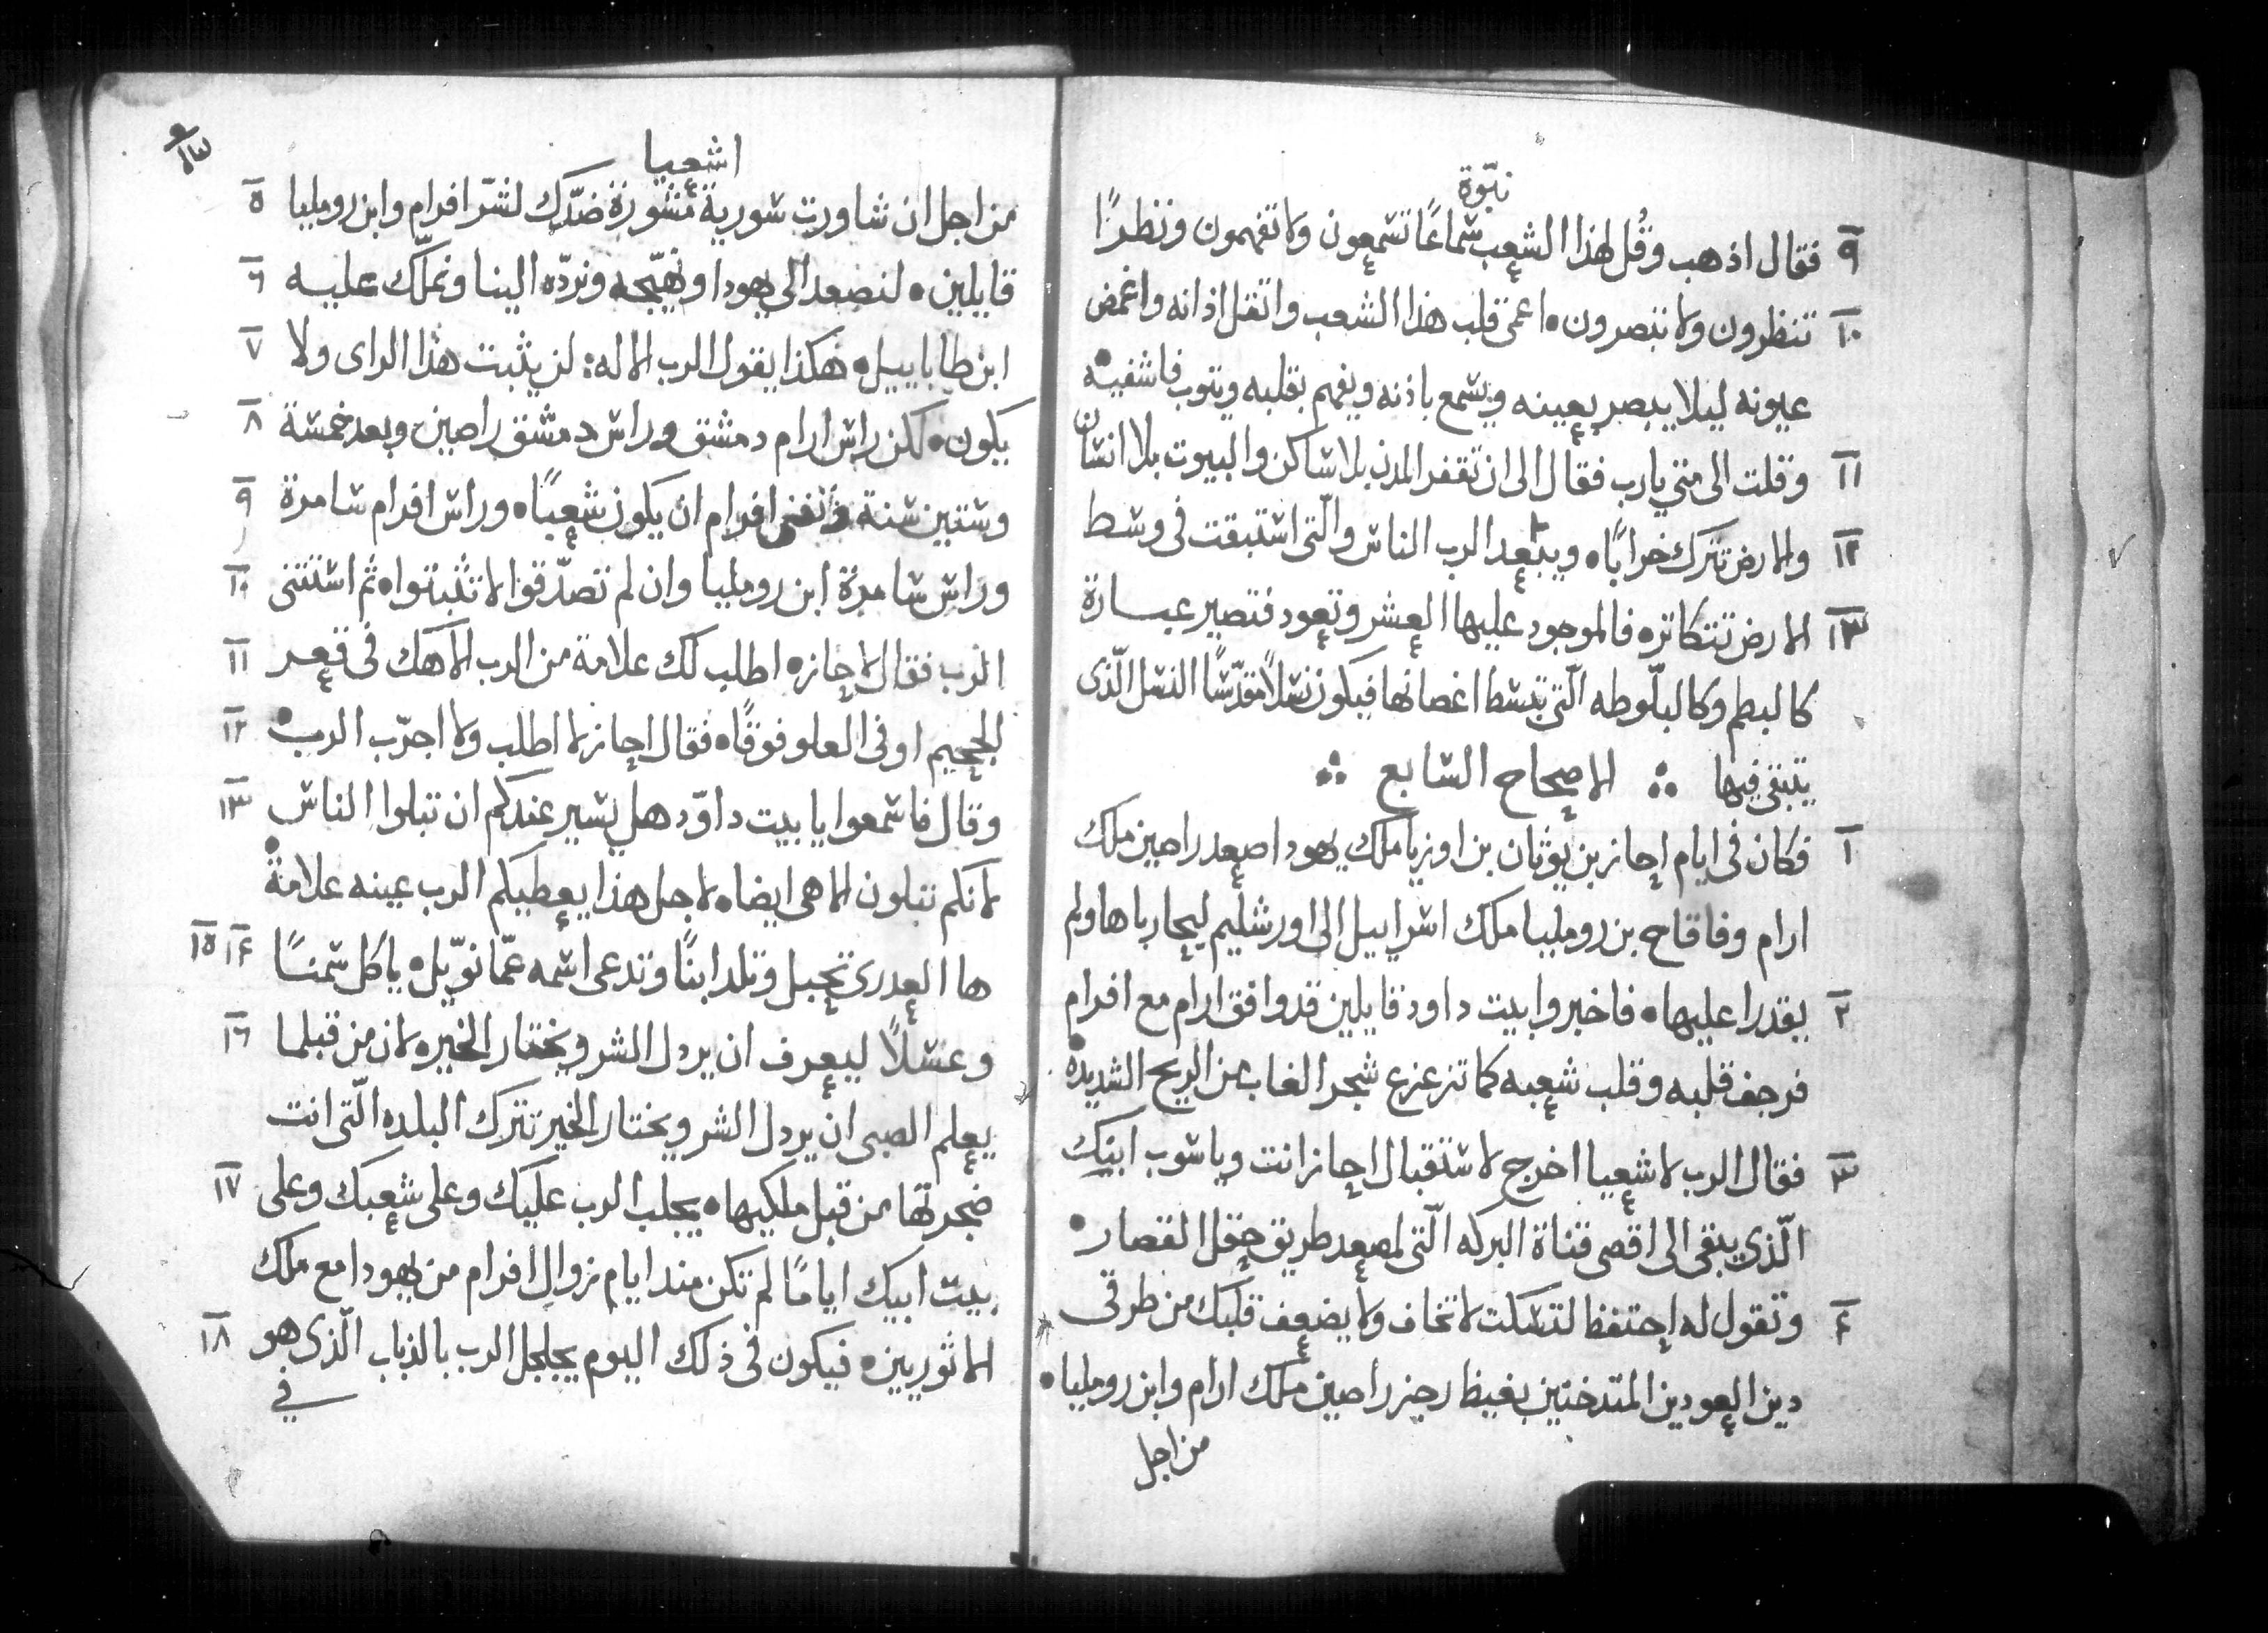 نبّوة
٩ فقال اذهب وقُل لهذا الشعب سماعًا تسمعون ولا تفهمون ونظرًا
١٠ تنظرون ولا تبصرون • اعمى قلب هذا الشعب واثقل اذانه واغمض
عيونه ليلا يبصر بعينه ويسمع باذنه ويفهم بقلبه ويتوب فاشفيه •
١١ وقلت الى متي يا رب فقال الى ان تقفر المدن بلا ساكن والبيوت بلا انسان
١٢ والارض تترك خرابًا • ويبعد الرب الناس والّتى استبقت فى وسط
١٣ الارض تتكاتر • فالموجود عليها العشر وتعود فتصير عبارة
كالبطم وكالبلّوطه الّتى تبسط اغصانها فيكون نسلاً مقدّسًا النسل الّذى
يتبقى فيها ∴ الاصحاح السابع ∴
١ فكان فى ايام احاز بن يوثان بن اوزيا ملك يهودا صعد راصين ملك
ارام وفاقاح بن روميليا ملك اسراييل الى اورشليم ليحارباها ولم
٢ يقدرا عليها • فاخبروا بيت داود قايلين قد وافق ارام مع افرام
فرجف قلبه وقلب شعبه كما تزعزع شجر الغاب من الريح الشديده •
٣ فقال الرب لاشعيا اخرج لاستقبال احاز انت وياشوب ابنك
الّذى يبقى الى اقصى قناة البركه الّتى لمصعد طريق حقل القصار •
۴ وتقول له احتفظ لتسكت لا تخاف ولا يضعف قلبك من طرقى
دين العودين المتدخنين بغيظ رجز راصين ملك ارام وابن روميليا •
من اجل
اشعيا
من اجل ان شاورت سورية مشورة ضدّك لشرّ افرام وابن روميليا ٥
قايلين • لنصعد الى يهودا ونهيّجه ونردّه الينا ونملّك عليه ٦
ابن طاباييل • هكذا يقول الرب الاله : لن يثبت هذا الراى ولا ٧
يكون • لكن راس ارام دمشق وراس دمشق راصين وبعد خمسة ٨
وستيين سنة تفنى افرام ان يكون شعبًا • وراس افرام سامرة ٩
وراس سامرة ابن روميليا وان لم تصدّقوا لا تثبتوا • ثم استثنى ١٠
الرب فقال لاحاز • اطلب لك علامة من الرب الاهك فى قعر ١١
الجحيم او فى العلو فوقًا • فقال احاز لا اطلب ولا اجرّب الرب • ١٢
وقال فاسمعوا يا بيت داوّد هل يسير عندكم ان تبلوا الناس ١٣
لانكم تبلون الاهى ايضا • لاجل هذا يعطيكم الرب عينه علامة •
ها العدرى تحبل وتلد ابنًا وتدعى اسمه عمّانوّيل • ياكل سمنًا ١۴ ١٥
وعسلاً ليعرف ان يردل الشر ويختار الخير • لان من قبلما ١٦
يعلم الصبى ان يردل الشر ويختار الخير تترك البلده الّتى انت
ضجرتها من قبل ملكيها • يجلب الرب عليك وعلى شعبك وعلى ١٧
بيت ابيك ايامًا لم تكن مند ايام زوال افرام من يهودا مع ملك
الاثوريين • فيكون فى ذلك اليوم يجلجل الرب بالذباب الّذى هو ١٨
في